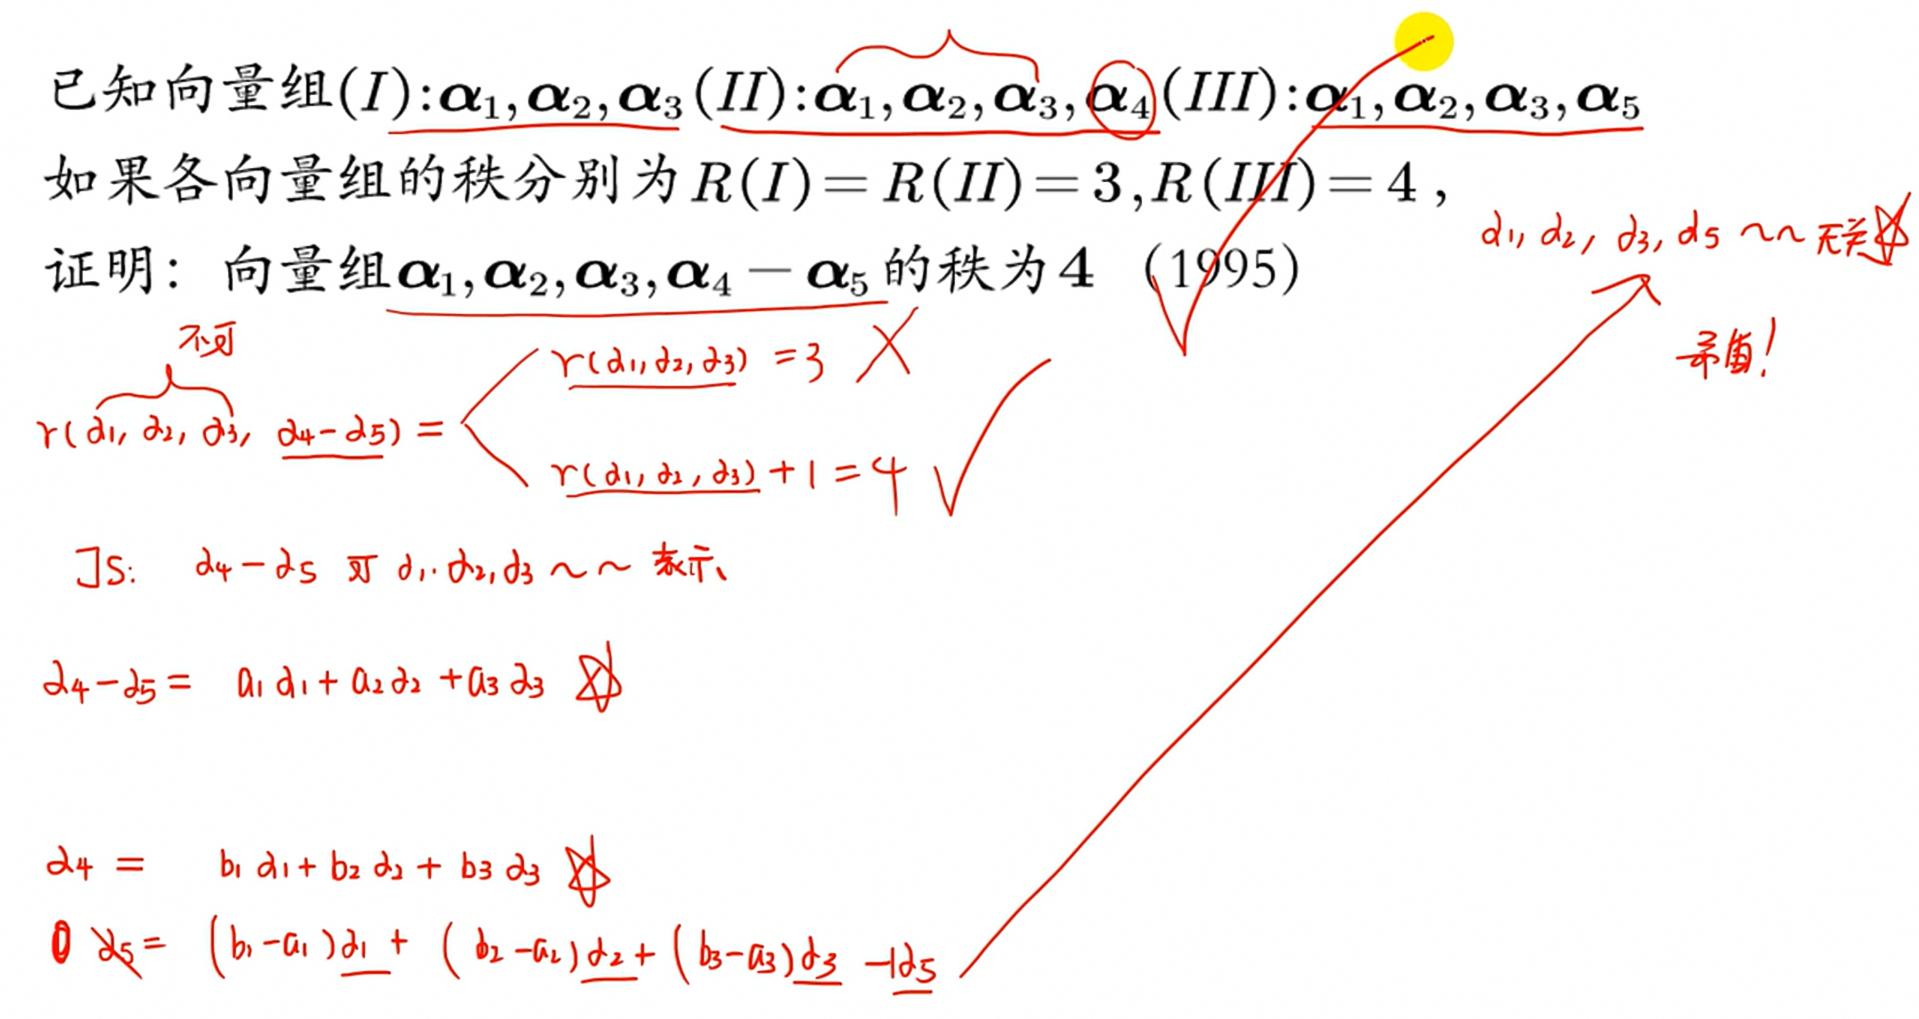 已知向量组(I):α₁,α₂,α₃(II):α₁,α₂,α₃,α₄(III):α₁,α₂,α₃,α₅
如果各向量组的秩分别为R(I)=R(II)=3,R(III)=4,
证明：向量组α₁,α₂,α₃,α₄-α₅的秩为4 (1995)
α₁, α₂, α₃, α₅ ~~ 无关☆
矛盾!
不可
r(α₁, α₂, α₃) = 3 ×
r(α₁, α₂, α₃, α₄-α₅) =
r(α₁, α₂, α₃) + 1 = 4 √
反: α₄-α₅ 可 α₁,α₂,α₃ ~~ 表示
α₄-α₅ = a₁α₁ + a₂α₂ + a₃α₃ ☆
α₄ = b₁α₁ + b₂α₂ + b₃α₃ ☆
0 α₅ = (b₁-a₁)α₁ + (b₂-a₂)α₂ + (b₃-a₃)α₃ -1α₅